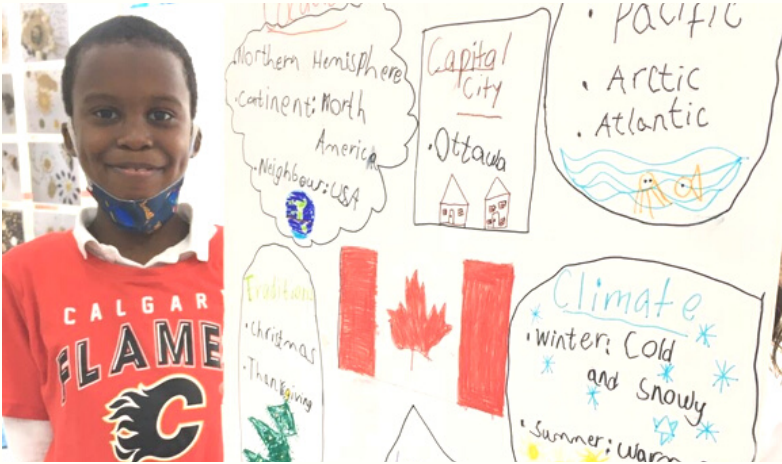 CALGAR
FLAME
C
Northern Hemisphere
Continent: North
America
Neighbour: USA
Capital
City
Ottawa
Pacific
Arctic
Atlantic
Traditions
Christmas
Thanksgiving
Climate
Winter: Cold
and Snowy
Summer: Warm